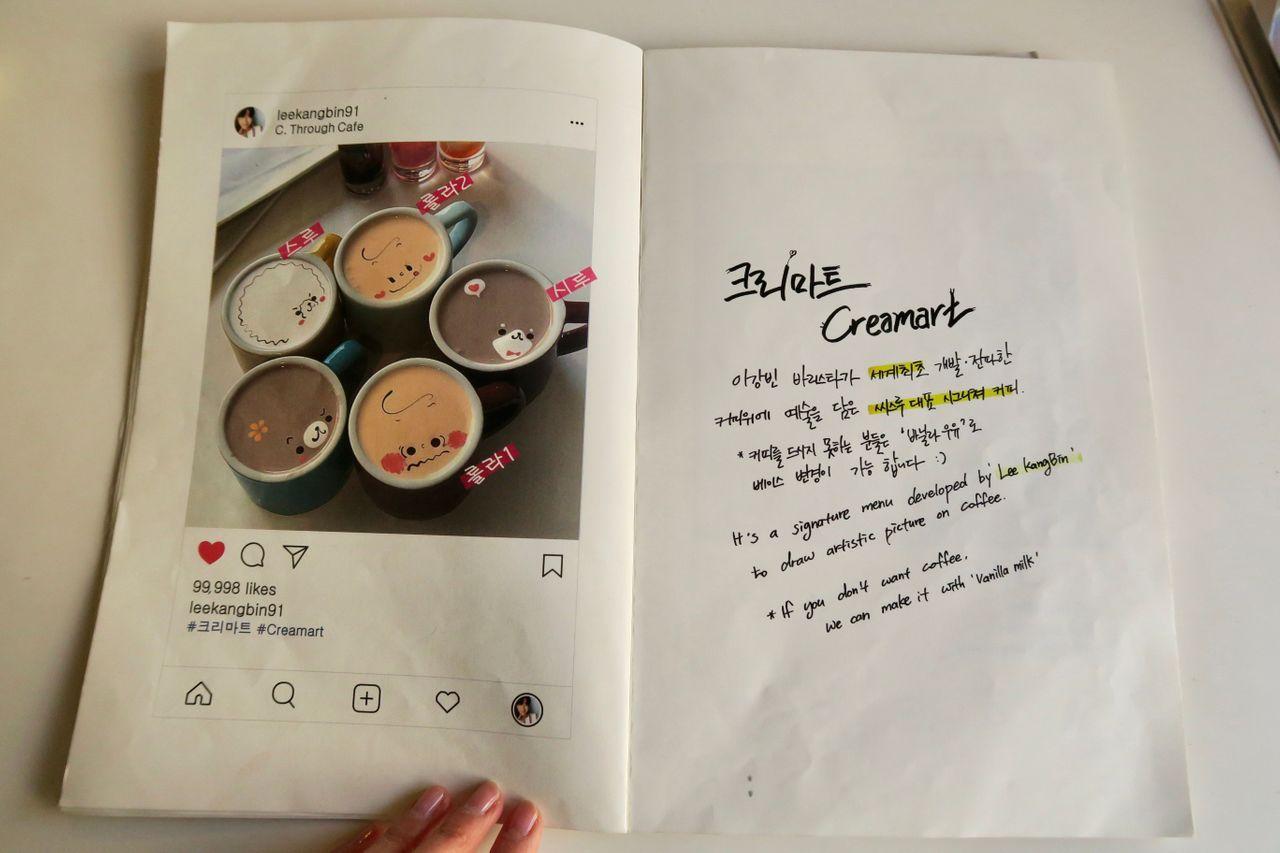 leekangbin91
C. Through Cafe
롤라2
스루
시루
롤라1
99,998 likes
leekangbin91
#크리마트 #Creamart
크리마트
Creamart
이강빈 바리스타가 세계최초 개발·전파한
커피위에 예술을 담은 씨스루 대표 시그니쳐 커피.
*커피를 드시지 못하는 분들은 '바닐라 우유'로
베이스 변경이 가능 합니다 :)
It's a signature menu developed by 'Lee KangBin'
to draw artistic picture on coffee.
* If you don't want coffee,
we can make it with 'Vanilla milk'